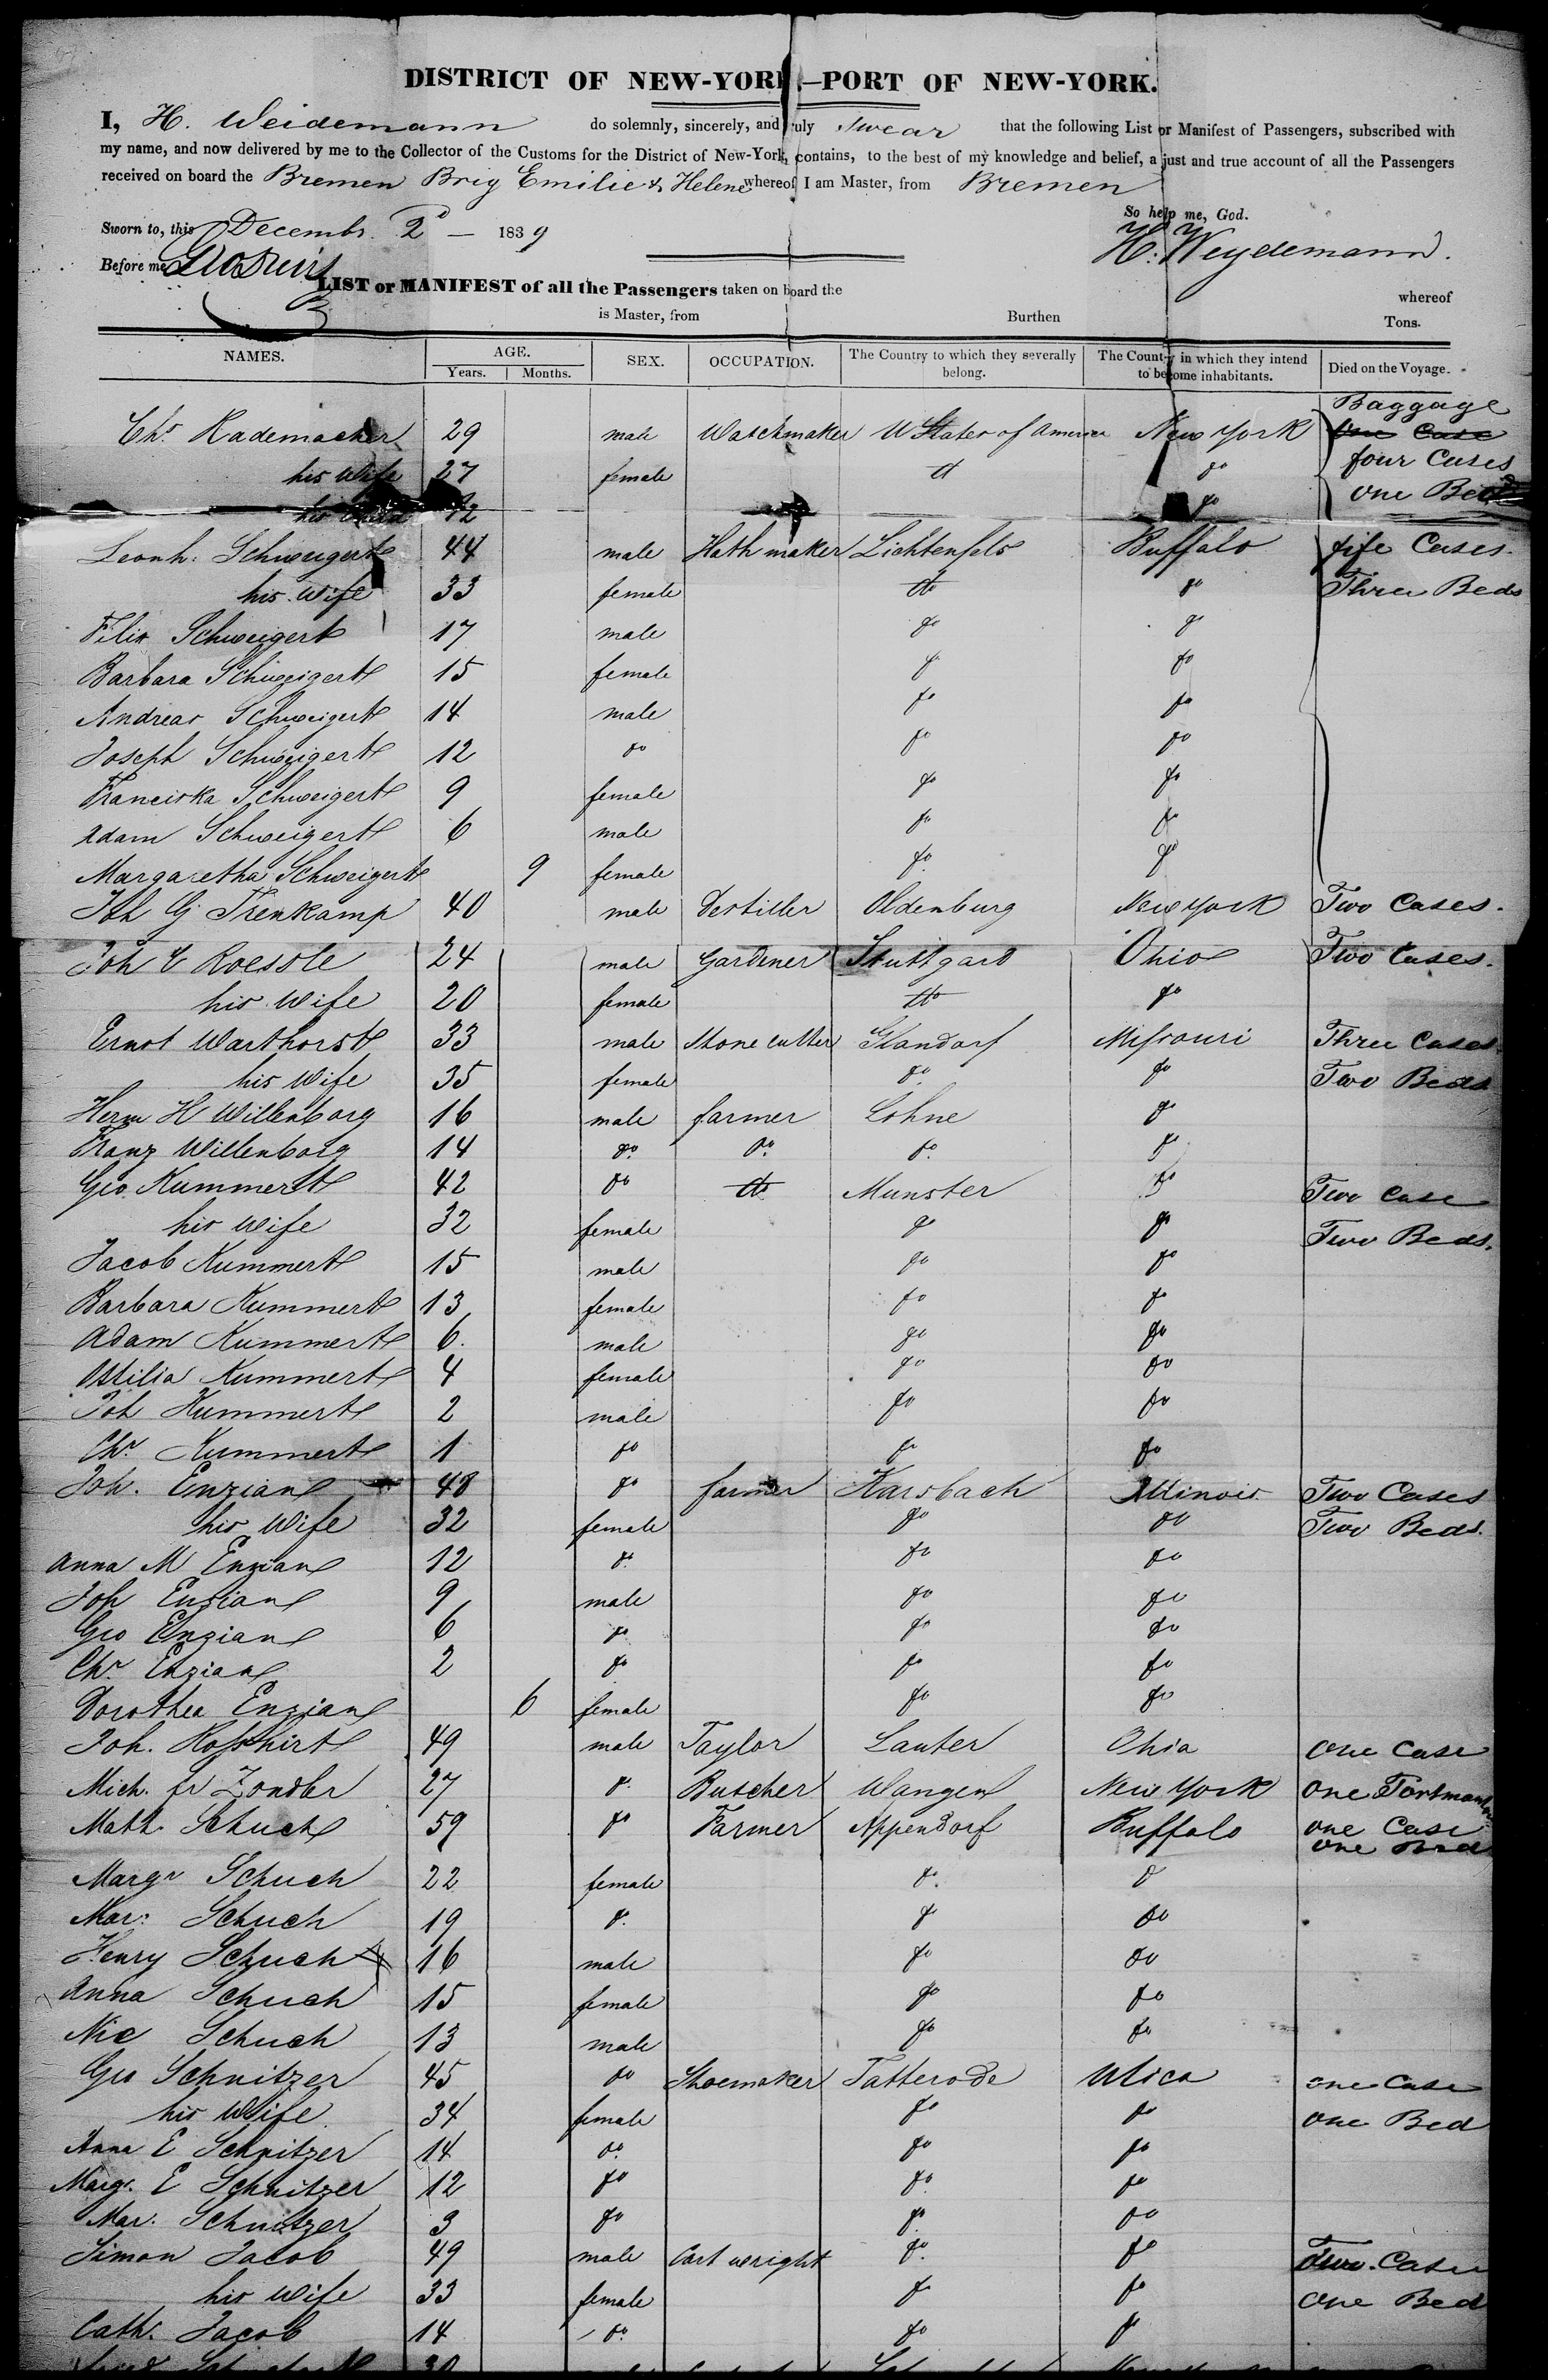 DISTRICT OF NEW-YORK,—PORT OF NEW-YORK.
I, H. Weidemann do solemnly, sincerely, and truly swear that the following List or Manifest of Passengers, subscribed with
my name, and now delivered by me to the Collector of the Customs for the District of New-York, contains, to the best of my knowledge and belief, a just and true account of all the Passengers
received on board the Bremen Brig Emilie & Helene whereof I am Master, from Bremen
So help me, God.
Sworn to, this Decembr. 2d — 1839
H. Weydemann.
Before me
LIST or MANIFEST of all the Passengers taken on board the whereof
is Master, from Burthen Tons.
NAMES. AGE. Years. Months. SEX. OCCUPATION. The Country to which they severally belong. The Country in which they intend to become inhabitants. Died on the Voyage.
Baggage
Chr. Rademacher 29 male Watchmaker U States of America New York one Case
his Wife 27 female do do four Cases
his Child 12 do one Bed
Leonh: Schweigert 44 male Hath maker Lichtenfels Buffalo fife Cases.
his Wife 33 female do do Three Beds
Felix Schweigert 17 male do do
Barbara Schweigert 15 female do do
Andreas Schweigert 14 male do do
Joseph Schweigert 12 do do do
Franciska Schweigert 9 female do do
Adam Schweigert 6 male do do
Margaretha Schweigert 9 female do do
Joh G Trenkamp 40 male Destiller Oldenburg New York Two Cases.
Joh E Roessle 24 male Gardener Stuttgard Ohio Two Cases.
his Wife 20 female do do
Ernst Warthorst 33 male Stone cutter Glandorf Missouri Three Cases
his Wife 35 female do do Two Beds
Herm H Willenborg 16 male farmer Lohne do
Franz Willenborg 14 do do do do
Geo Kummert 42 do do Munster do Two Case
his Wife 32 female do do Two Beds.
Jacob Kummert 15 male do do
Barbara Kummert 13 female do do
Adam Kummert 6. male do do
Ottilia Kummert 4 female do do
Joh Kummert 2 male do do
Chr. Kummert 1 do do do
Joh. Enzian 48 do farmer Karsbach Illinois Two Cases
his Wife 32 female do do Two Beds.
Anna M Enzian 12 do do do
Joh Enzian 9 male do do
Geo Enzian 6 do do do
Chr. Enzian 2 do do do
Dorothea Enzian 6 female do do
Joh. Hosshirt 49 male Taylor Lauter Ohia one Case
Mich. 27 do Butcher Wangen New York one
Math. Schuch 59 do Farmer Appendorf Buffalo one Case
one Bed
Margr Schuch 22 female do do
Mar: Schuch 19 do do do
Henry Schuch 16 male do do
Anna Schuch 15 female do do
Nic Schuch 13 male do do
Geo Schnitzer 45 do Shoemaker Tatterode Utica one Case
his Wife 34 female do do one Bed
Anna E Schnitzer 14 do do do
Margr. E Schnitzer 12 do do do
Mar. Schnitzer 3 do do do
Simon Jacob 49 male Cart wright do do Two Case
his Wife 33 female do do one Bed
Cath. Jacob 14 do do do